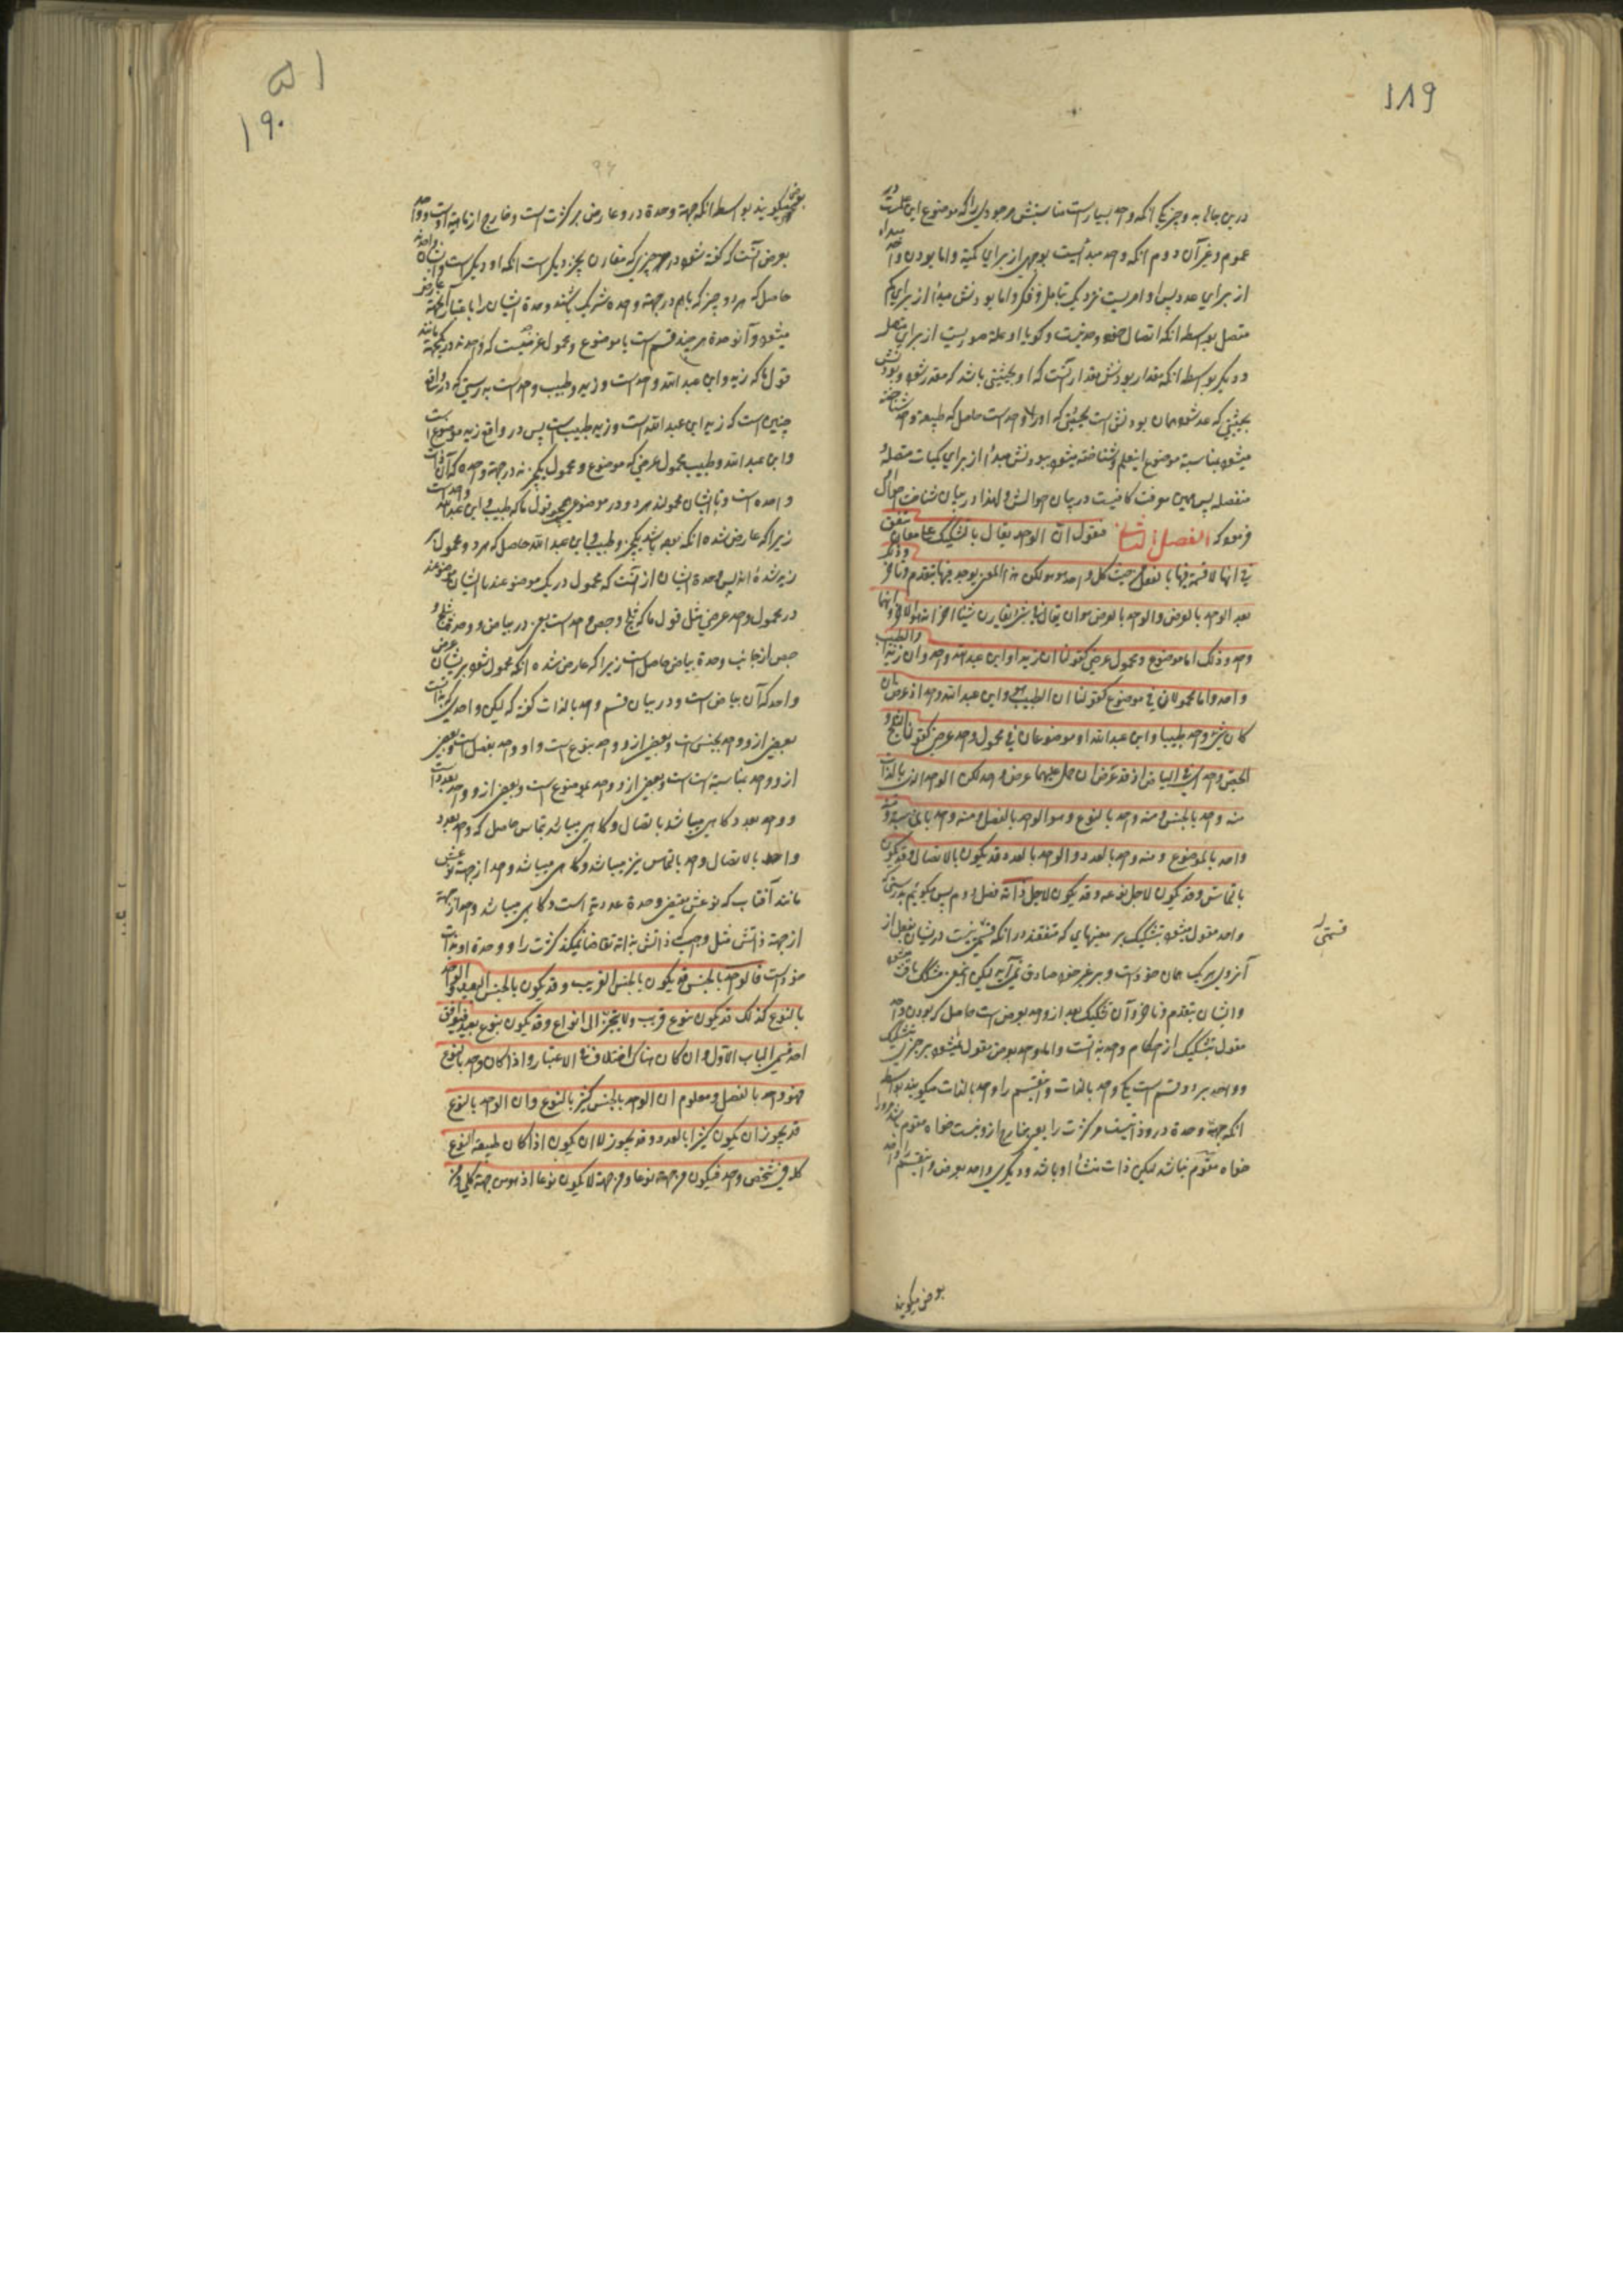 189
درین مقاله به دو چیز یکی انکه واحد بسیار است مناسبتش مر موجودی را که موضوع این علمست در
عموم و غیر آن دوم انکه واحد مبدأ است بوجهی از برای کمیة و اما بودن واحد مبدأ
از برای عدد پس او امریست نزدیک بتامل و فکر و اما بودنش مبدأ از برای کم
متصل بواسطه انکه اتصال خود وحدتیست و کویا او علة صوریست از برای متصل
و دیکر بواسطه انکه مقدار بودنش مقدار آنست که او بحیثیتی باشد که مقدر شود و بودنش
بحیثیتی که عد شود همان بودنش است بحیثیتی که او را واحد است حاصل که طبیعة واحد شناخته
میشود بمناسبة موضوع اینعلم و شناخته میشود ببودنش مبدأ از برای کمیات متصله و
منفصله پس همین معرفت کافیست در بیان احوالش و لهذا در بیان شناخت احوال او
فرمود که الفصل الثانی فنقول ان الواحد یقال بالتشکیک علی معان تتفق
فی انها لا قسمة فیها بالفعل من حیث کل واحد هو هو لکن هذا المعنی یوجد فیها بتقدم و تاخر و ذلک
بعد الواحد بالعرض و الواحد بالعرض هو ان یقال فی شئ یقارن شیئا اخر انه هو الاخر و انهما
واحد و ذلک اما موضوع و محمول عرضی کقولنا ان زیدا و ابن عبد الله واحد و ان زیدا و الطبیب
واحد و اما محمولان فی موضوع کقولنا ان الطبیب هو و ابن عبد الله واحد اذ عرض ان
کان شئ واحد طبیبا و ابن عبد الله او موضوعان فی محول واحد عرضی کقولنا الثلج و
الجص واحد ای فی البیاض اذ قد عرض ان حمل علیهما عرض واحد لکن الواحد الذی بالذات
منه واحد بالجنس و منه واحد بالنوع و هو الواحد بالفصل و منه واحد بالمناسبة و منه
واحد بالموضوع و منه واحد بالعدد و الواحد بالعدد قد یکون بالاتصال و قد یکون
بالتماس و قد یکون لاجل نوعه و قد یکون لاجل ذاته فصل دوم پس میکوئیم بدرستی که
واحد مقول میشود بتشکیک بر معنیهایی که متفقند در انکه قسمتی نیست دریشان بفعل از
آنروی هر یک همان خود است و بر غیر خود صادق نمی آید لیکن اینمعنی مشکک یافت میشود
در ایشان بتقدم و تاخر و آن تشکیک بعد از واحد بعرض است حاصل که بودن واحد
مقول بتشکیک از احکام واحد بذاتست و اما واحد بعرض مقول نمیشود بر چیزی بتشکیک
و واحد بر دو قسم است یکی واحد بالذات و اینقسم را واحد بالذات میکویند بواسطه
انکه جهة وحدة درو ذاتیست مر کثرت را یعنی خارج ازو نیست خواه مقوم باشد مر او را
خواه مقوم نباشد لیکن ذات منشأ او باشد و دیکری واحد بعرض و اینقسم را واحد
قسمتی
بعرض میکویند
51
190
بعرض میکویند بواسطه انکه جهة وحدة درو عارض بر کثرت است و خارج از ماهیة اوست و واحد
بعرض آنست که کفته شود در هر چیزی که مقارن بچیز دیکر است انکه او دیکر است و ایشان واحدند
حاصل که هر دو چیز که باهم در جهة وحده شریک باشند وحدة ایشان را باعتبار آنجهة عارض
میشود و آنوحدة هر چند قسم است یا موضوع و محمول عرضیست که واحدند در یکجهة مانند
قول ما که زید و ابن عبد الله واحد است و زید و طبیب واحد است بدرستی که در واقع
چنین است که زید ابن عبد الله است و زید طبیب است پس در واقع زید موضوع است
و ابن عبد الله و طبیب محمول عرضی که موضوع و محمول یکچیزند در جهة وحده که آن ذات
واحده است و یا ایشان محمولند هر دو در موضوعی همچو قول ما که طبیب و ابن عبد الله واحد است
زیرا که عارض شده انکه بوده باشد یکچیز و طبیب و ابن عبد الله حاصل که هر دو محمول بر
زید شده اند پس وحدة ایشان از آنست که محمول در یک موضوعند یا ایشان موضوعند
در محمول واحد عرضی مثل قول ما که ثلج و جص واحد است یعنی در بیاض و وحدة ثلج و
جص از جانب وحدة بیاض حاصل است زیرا که عارض شده انکه محمول شود بریشان عرض
واحد که آن بیاض است و در بیان قسم واحد بالذات کفته که لیکن واحدی که بذاتست
بعضی ازو واحد بجنس است و بعضی ازو واحد بنوع است و او واحد بفصل است و بعضی
ازو واحد بمناسبة است و بعضی ازو واحد بموضوع است و بعضی ازو واحد بعدد است
و واحد بعدد کاهی میباشد باتصال و کاهی میباشد بتماس حاصل که واحد بعدد
واحد بالاتصال و واحد بالتماس نیز میباشد و کاهی میباشد واحد از جهة نوعش
مانند آفتاب که نوعش مقتضی وحدة عددیة است و کاهی میباشد واحد از جهة
از جهة ذاتش مثل واجب که ذاتش بذاته تقاضا نمیکند کثرت را و وحدة او بذات
خود است فالواحد بالجنس قد یکون بالجنس القریب و قد یکون بالجنس البعید و الواحد
بالنوع کذلک قد یکون بنوع قریب و لا یتجزئ الی انواع و قد یکون بنوع بعید فیوافق
احد قسمی الباب الاول و ان کان هناک اختلاف فی الاعتبار و اذا کان واحد بالنوع
فهو واحد بالفصل و معلوم ان الواحد بالجنس کثیر بالنوع و ان الواحد بالنوع
قد یجوز ان یکون کثیرا بالعدد و قد یجوز لا ان یکون اذا کان طبیعة النوع
کلها فی شخص واحد فیکون من جهة نوعا و من جهة لا یکون نوعا اذ هو من جهة کلی و من